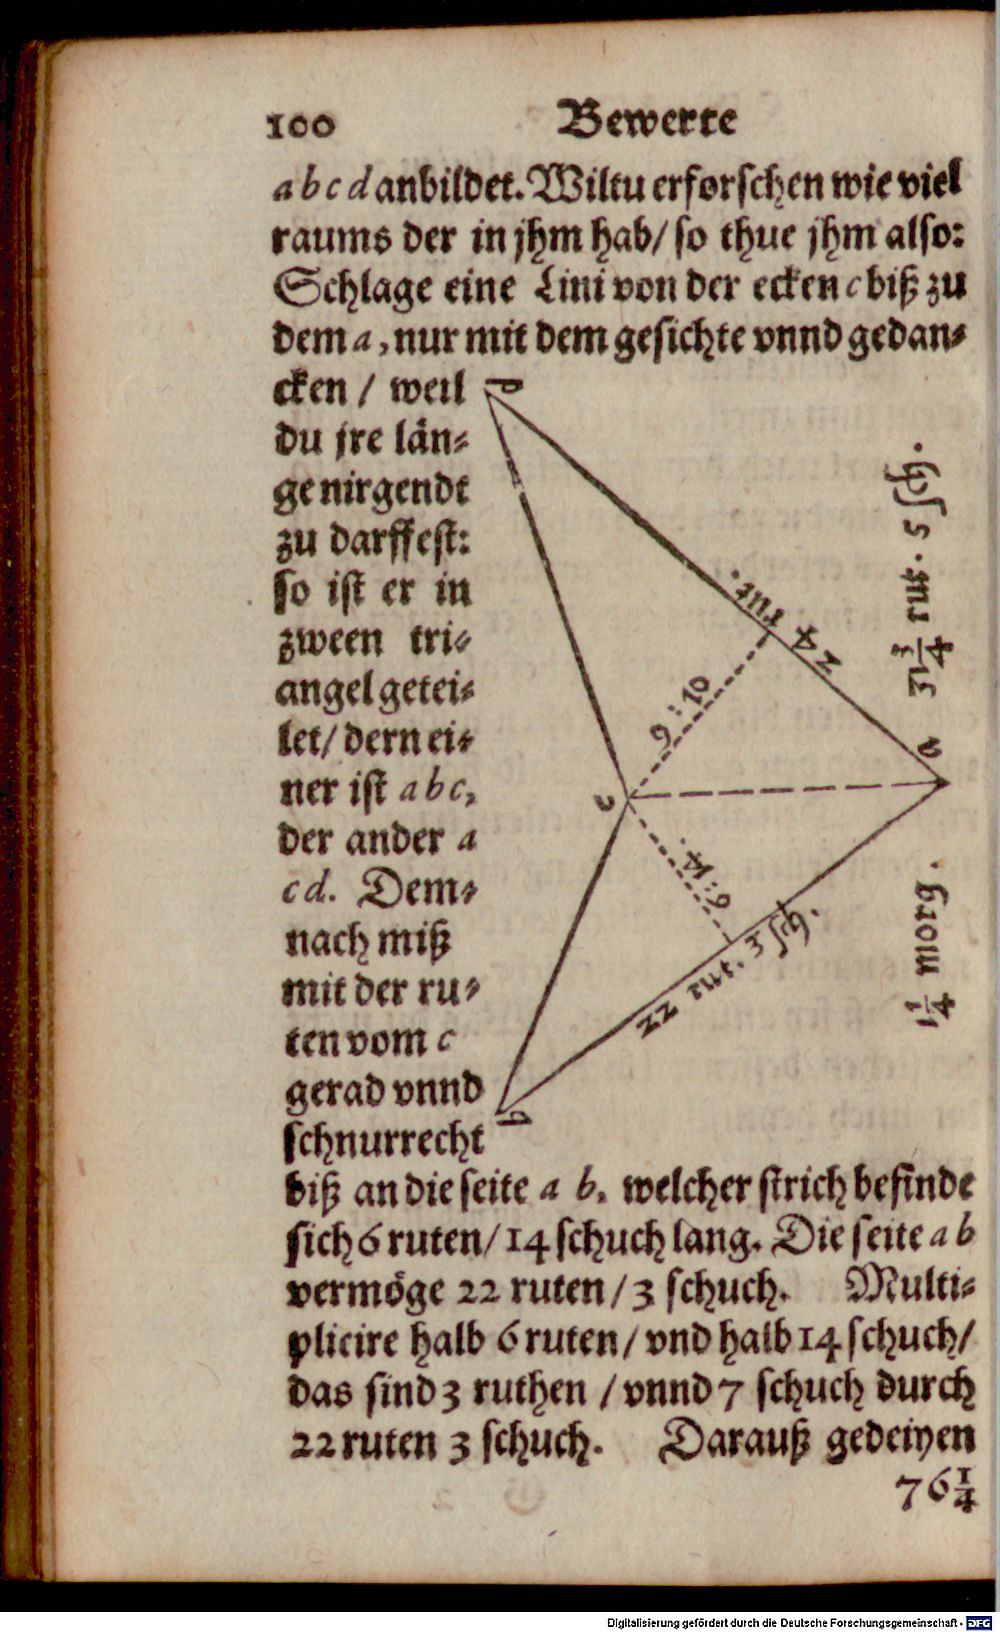 100 Bewerte
a b c d anbildet. Wiltu erforschen wie viel
raums der in jhm hab/ so thue jhm also:
Schlage eine Lini von der ecken c biß zu
dem a, nur mit dem gesichte vnnd gedan⸗
cken / weil
du jre län⸗
ge nirgendt
zu darffest:
so ist er in
zween tri⸗
angel getei⸗
let/ dern ei⸗
ner ist a b c,
der ander a
c d. Dem⸗
nach miß
mit der ru⸗
ten vom c
gerad vnnd
schnurrecht
biß an die seite a b, welcher strich befinde
sich 6 ruten/ 14 schuch lang. Die seite a b
vermöge 22 ruten/ 3 schuch. Multi⸗
plicire halb 6 ruten/ vnd halb 14 schuch/
das sind 3 ruthen / vnnd 7 schuch durch
22 ruten 3 schuch. Darauß gedeiyen
76 1/4
d
24 rut.
9 : 10
a
c
6 : 14.
22 rut. 3 sch.
b
31 3/4 rut. 5 sch.
1 1/4 morg.
Digitalisierung gefördert durch die Deutsche Forschungsgemeinschaft - DFG